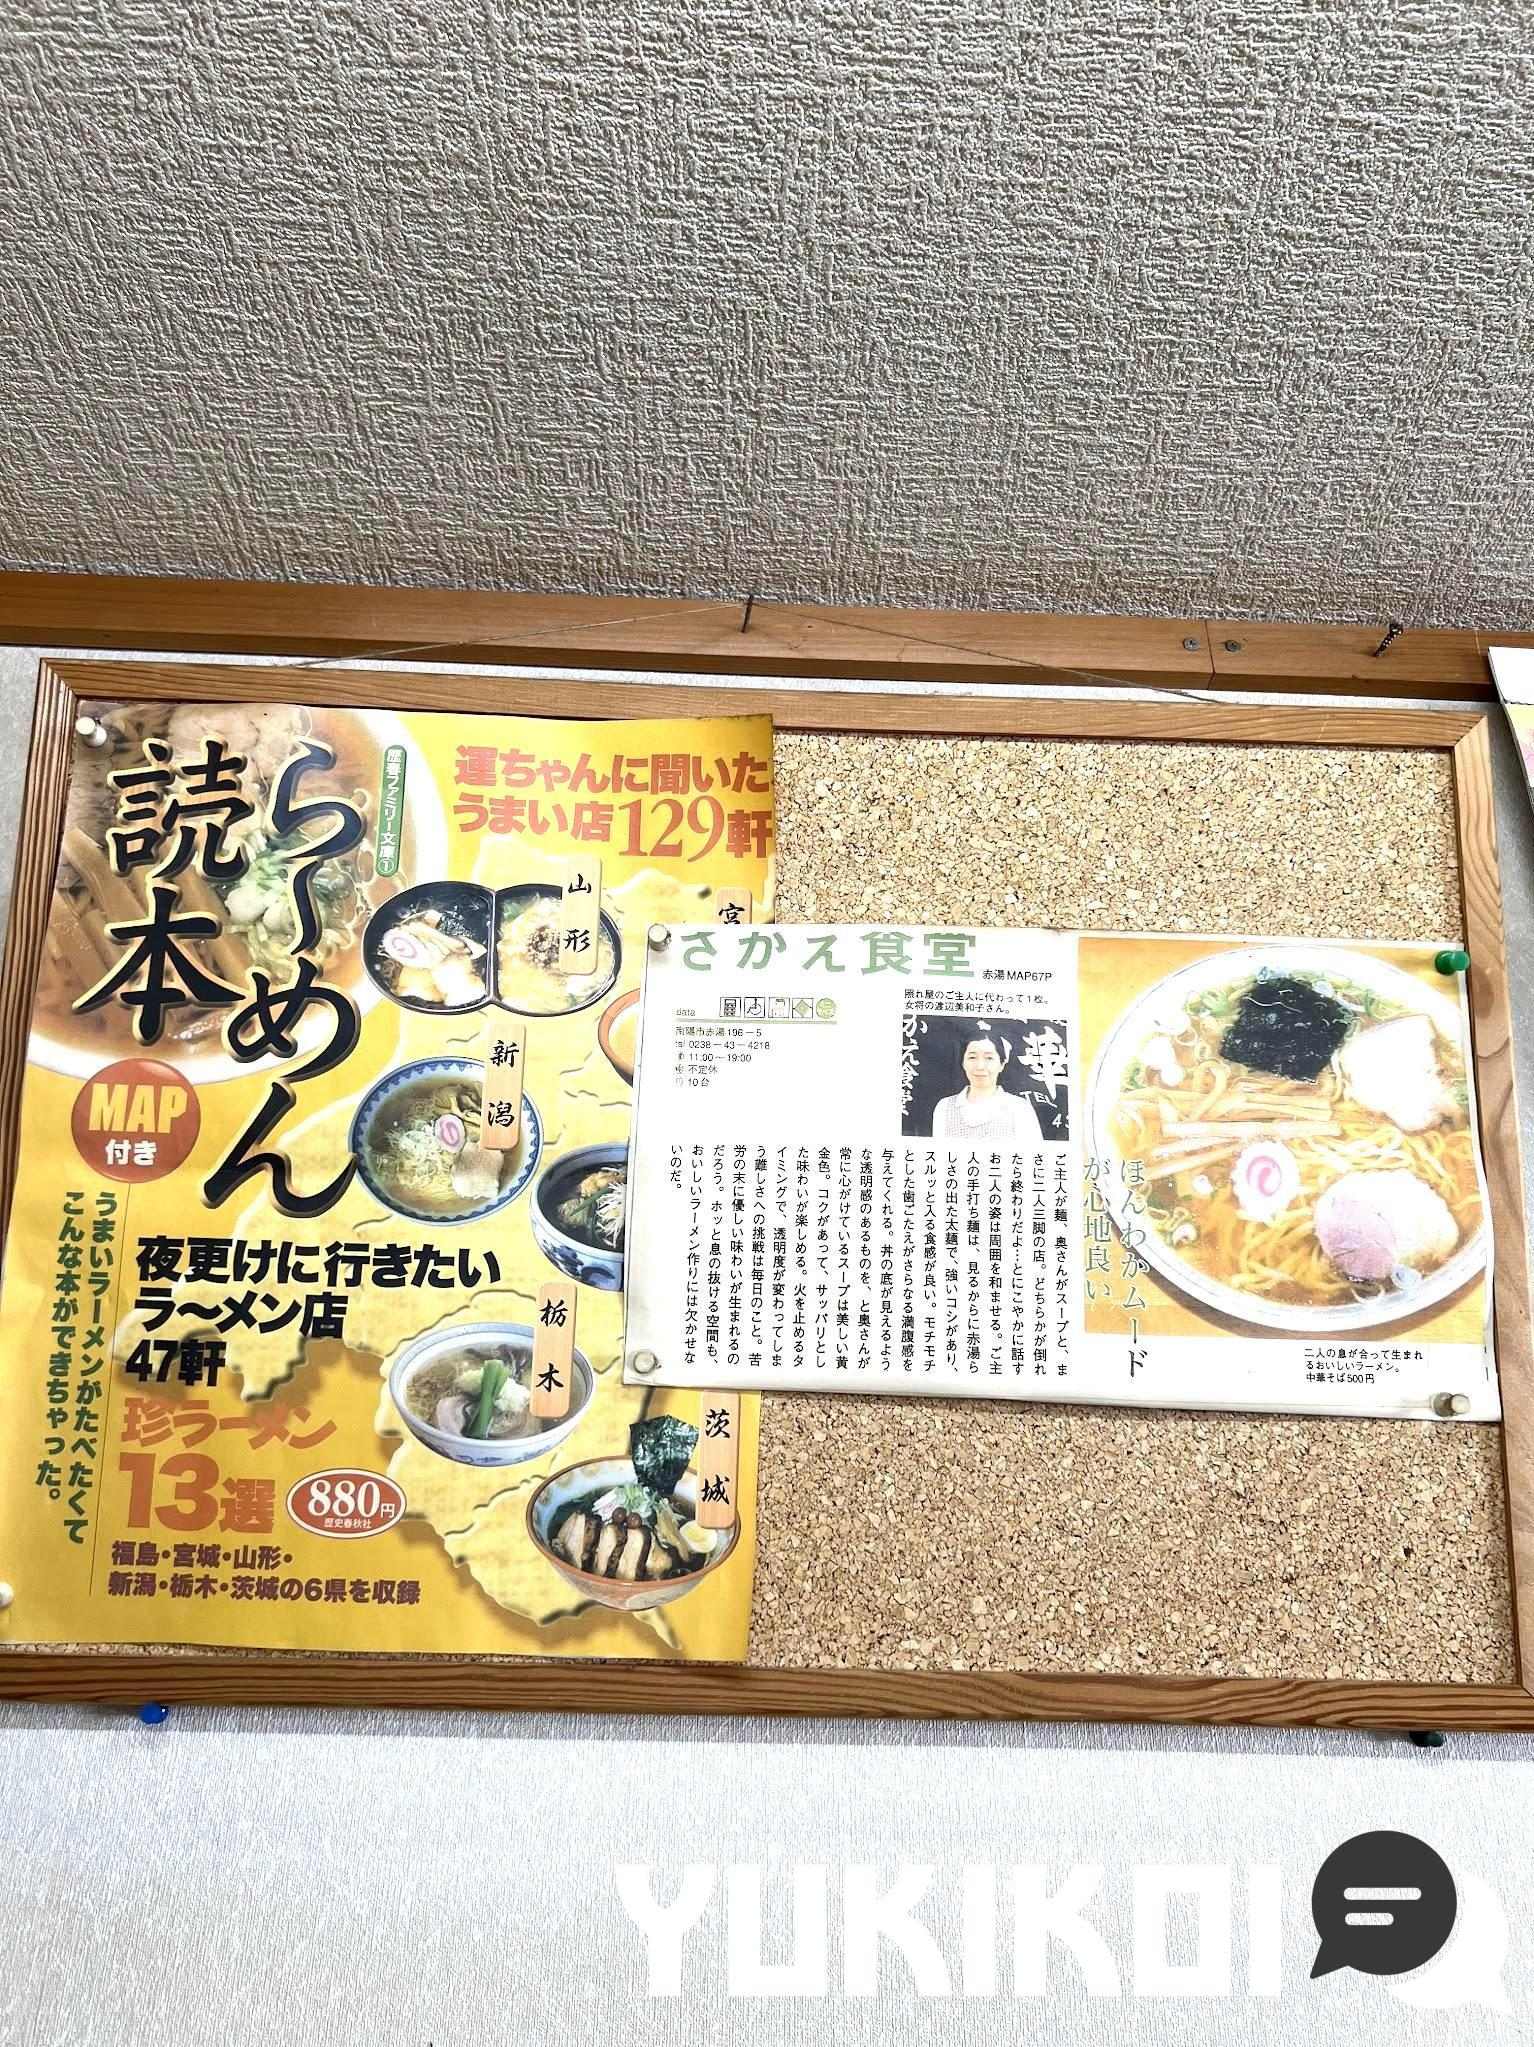 らーめん
読本
歴春ファミリー文庫①
運ちゃんに聞いた
うまい店129軒
山形
宮
新潟
栃木
茨城
MAP
付き
うまいラーメンがたべたくて
こんな本ができちゃった。
夜更けに行きたい
ラ〜メン店
47軒
珍ラーメン
13選
880円
歴史春秋社
福島・宮城・山形・
新潟・栃木・茨城の6県を収録
さかえ食堂
赤湯MAP67P
data
南陽市赤湯196−5
0238−43−4218
11:00〜19:00
不定休
10台
照れ屋のご主人に代わって1枚。
女将の渡辺美和子さん。
かえ食堂
華
TEL
ほんわかムード
が心地良い
ご主人が麺、奥さんがスープと、ま
さに二人三脚の店。どちらかが倒れ
たら終わりだよ…とにこやかに話す
お二人の姿は周囲を和ませる。ご主
人の手打ち麺は、見るからに赤湯ら
しさの出た太麺で、強いコシがあり、
スルッと入る食感が良い。モチモチ
とした歯ごたえがさらなる満腹感を
与えてくれる。丼の底が見えるよう
な透明感のあるものを、と奥さんが
常に心がけているスープは美しい黄
金色。コクがあって、サッパリとし
た味わいが楽しめる。火を止めるタ
イミングで、透明度が変わってしま
う難しさへの挑戦は毎日のこと。苦
労の末に優しい味わいが生まれるの
だろう。ホッと息の抜ける空間も、
おいしいラーメン作りには欠かせな
いのだ。
二人の息が合って生まれ
るおいしいラーメン。
中華そば500円
YUKIKOI